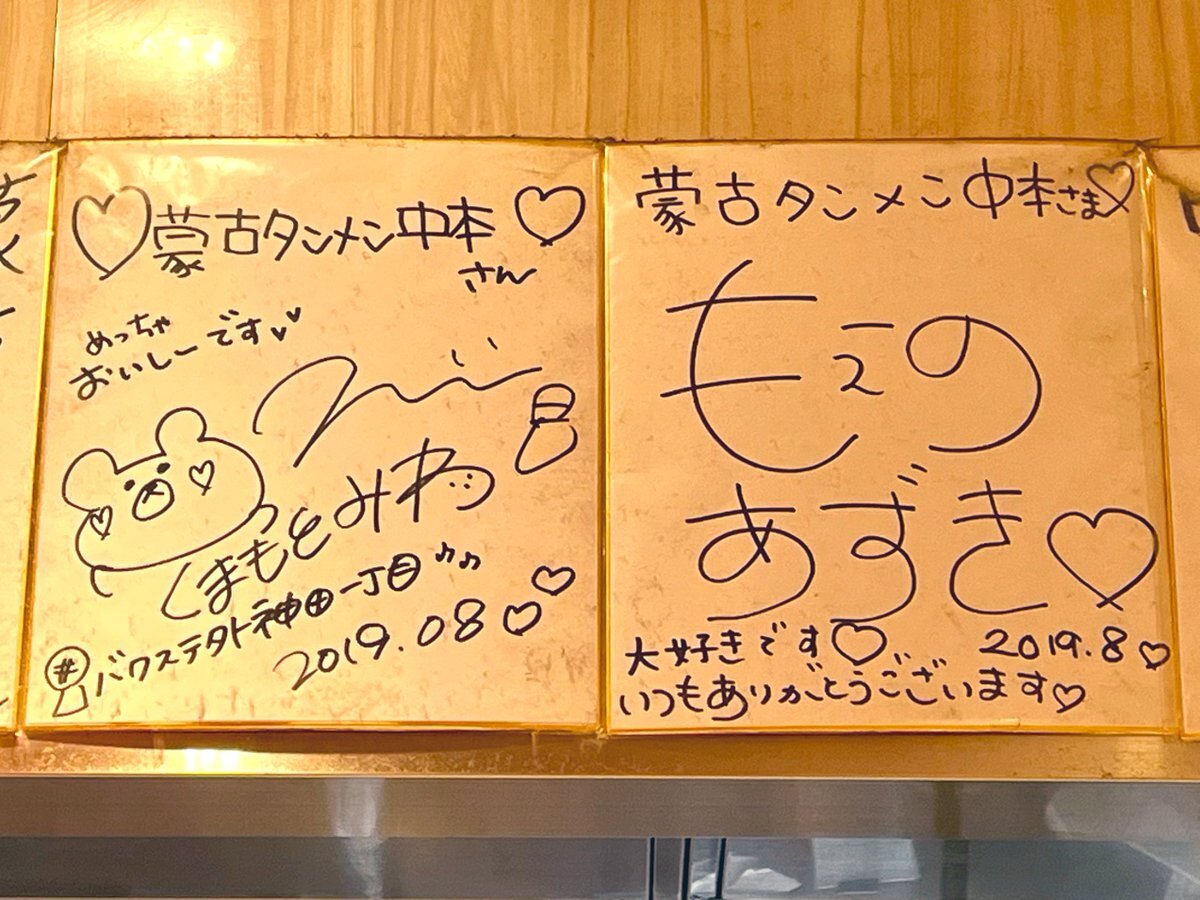 ♡蒙古タンメン中本♡
さん
めっちゃ
おいしーです
くまもと みわ
#バクステタト神田一丁目♪♪
2019.08♡♡
蒙古タンメン中本さま♡
もこの
あずき♡
大好きです♡ 2019.8♡
いつもありがとうございます♡